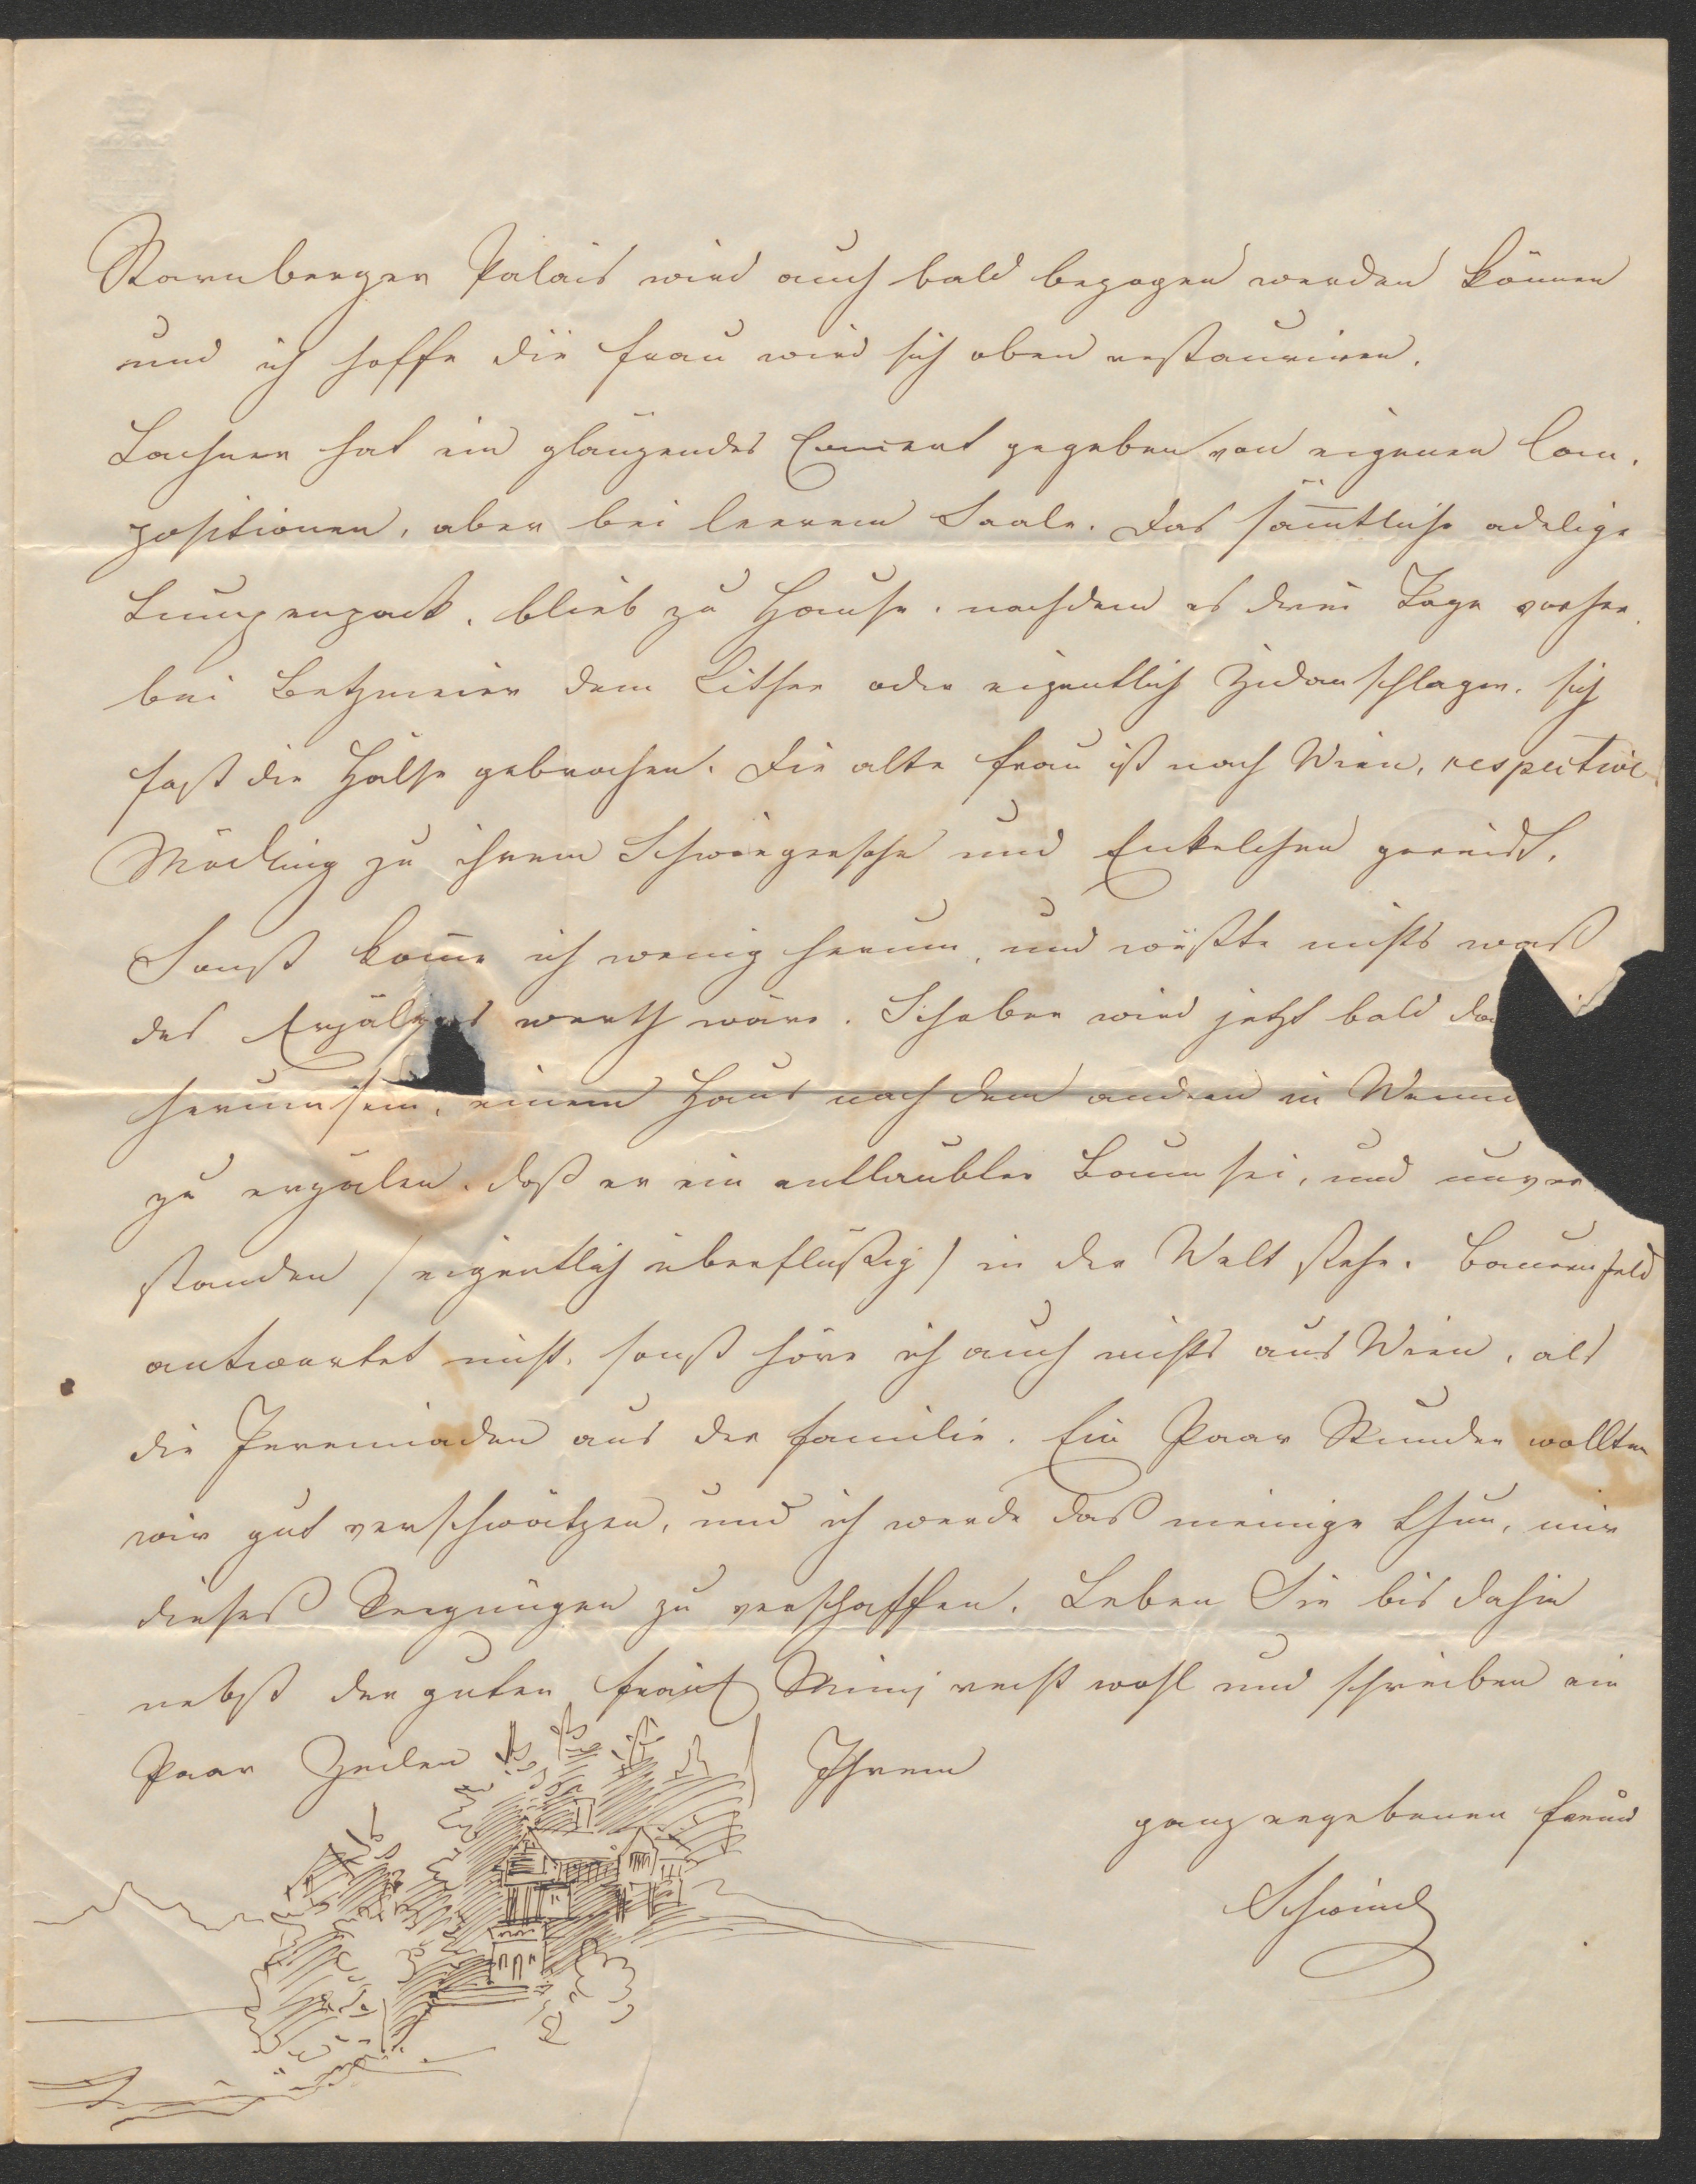 Starnberger Palais wird auch bald bezogen werden können
und ich hoffe die Frau wird sich oben restauriren.
Lachner hat ein glänzendes Concert gegeben von eigenen Com-
positionen, aber bei leerem Saale. Das sämtliche adelige
Lumpenpack, blieb zu Hause, nachdem es drei Tage vorher
bei Betzmeier dem Zither oder eigentlich Zidanschlager, sich
fast die Hälse gebrochen. Die alte Frau ist nach Wien, respective
Mödling zu ihrem Schwiegersohn und Enkelchen gereist.
Sonst kom̅e ich wenig herum, und wüßte nichts waß
des Erzälens werth wäre. Schober wird jetzt bald
herum sein, einem Haus nach dem andern in
zu erzälen, daß er ein entlaubter Baum sei, und unver
standen (eigentlich überflüßig) in der Welt stehe. Bauernfeld
antwortet nicht, sonst höre ich auch nichts aus Wien, als
die Jeremiaden aus der Familie. Ein Paar Stunden wollten
wir gut verschwätzen, und ich werde daß meinige thun, mir
dieseß Vergnügen zu verschaffen. Leben Sie bis dahin
nebst der guten Mimj recht wohl und schreiben ein
Paar Zeilen Ihrem
ganz ergebenen Freund
Schwind